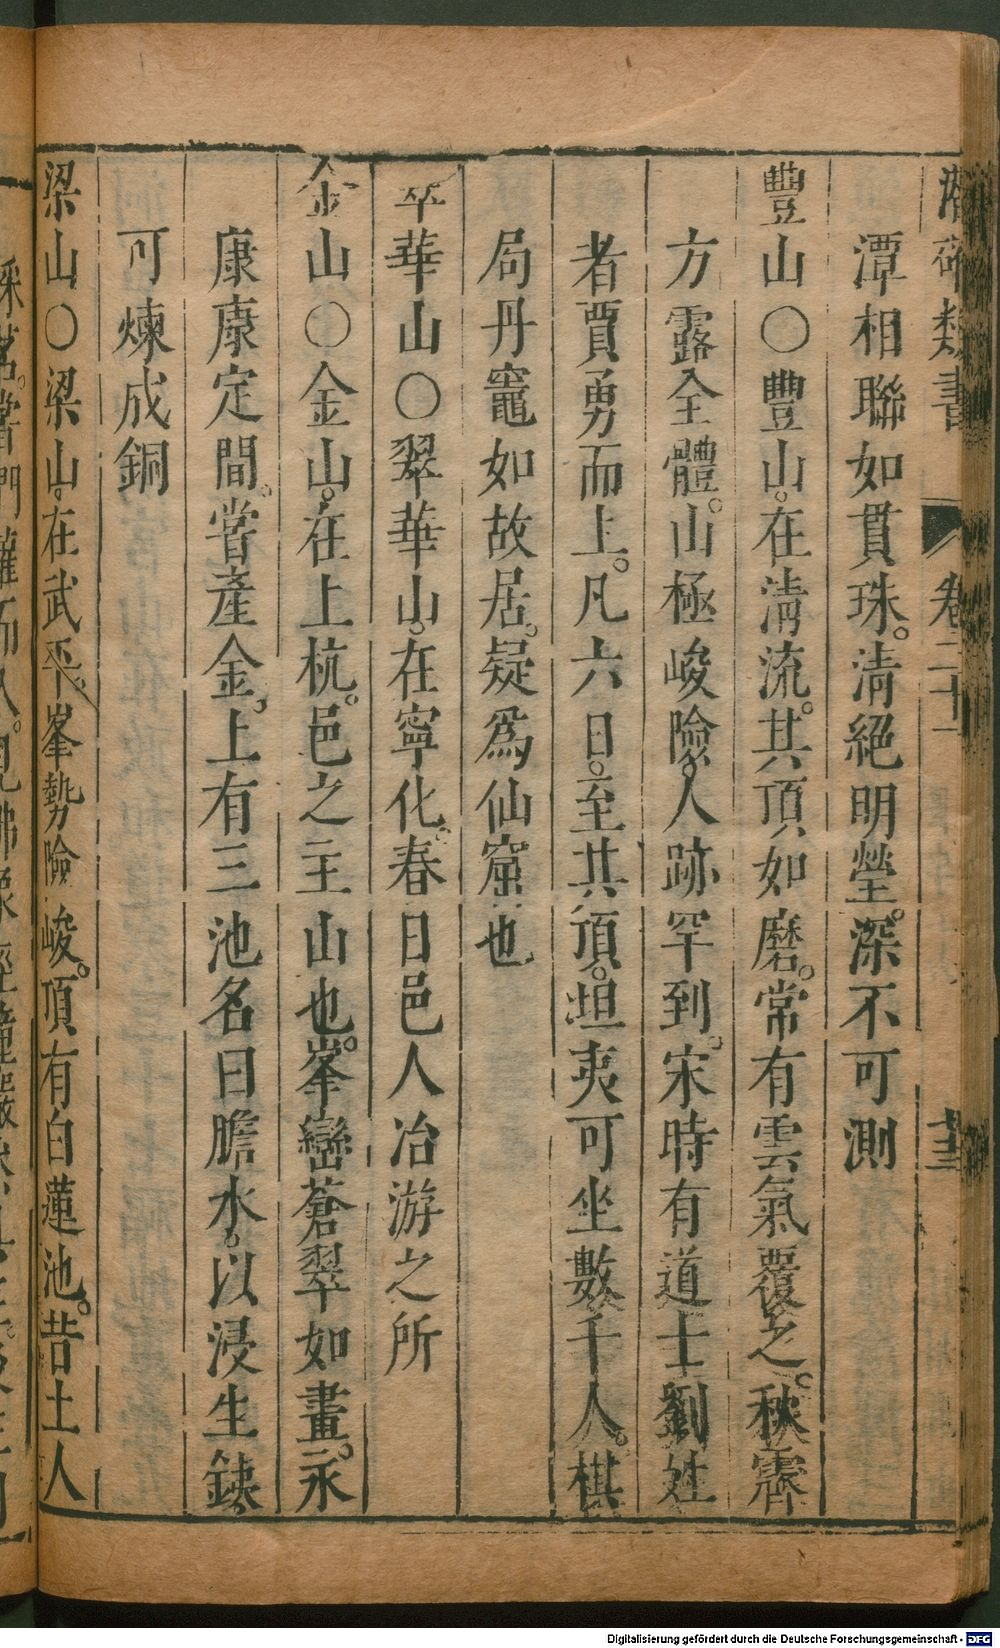 潛確類書 卷二十一
潭相聯如貫珠。淸絕明瑩。深不可測
豐山〇豐山。在淸流。其頂如磨。常有雲氣覆之。秋霽
方露全體。山極峻險。人跡罕到。宋時有道士劉姓
者賈勇而上。凡六日。至其頂。坦夷可坐數千人。棋
局丹竈如故居。疑爲仙窟也
翠華山〇翠華山。在寧化。春日邑人冶游之所
金山〇金山。在上杭。邑之主山也。峯巒蒼翠如畫。宋
康康定間。嘗產金。上有三池名曰膽水。以浸生鐵。
可煉成銅
梁山〇梁山。在武平。峯勢險峻。頂有白蓮池。昔土人
Digitalisierung gefördert durch die Deutsche Forschungsgemeinschaft - DFG